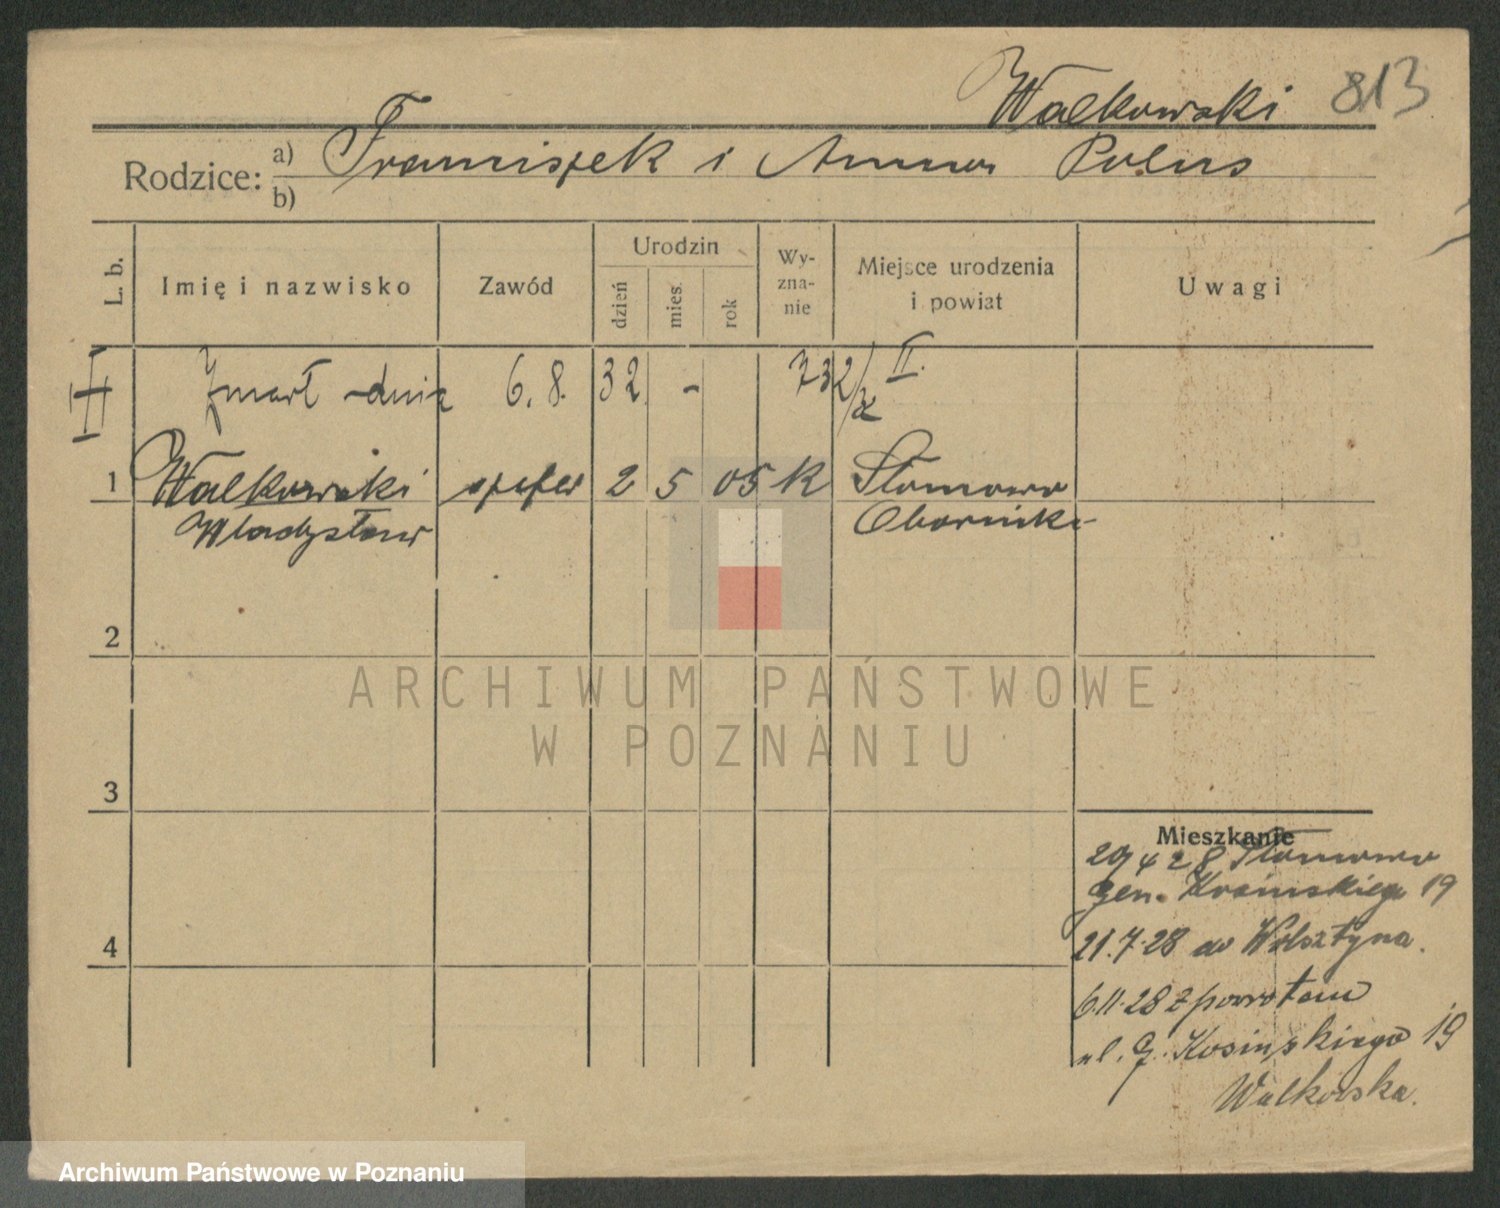 Walkowski 813
Rodzice: a) Franciszek i Anna Polus
b)
L. b. Imię i nazwisko Zawód Urodzin dzień mies. rok Wyznanie Miejsce urodzenia i powiat Uwagi
II Zmarł dnia 6. 8. 32. - 732/32 II.
1 Walkowski szofer 2 5 05 K Słomowo
Władysław Oborniki
2
3
4
Mieszkanie
29 4 28 Słomowo
gen. Kosińskiego 19
21.7.28 do Wolsztyna.
6.11.28 z powrotem
ul. G. Kosińskiego 19
Walkowska.
ARCHIWUM PAŃSTWOWE
W POZNANIU
Archiwum Państwowe w Poznaniu